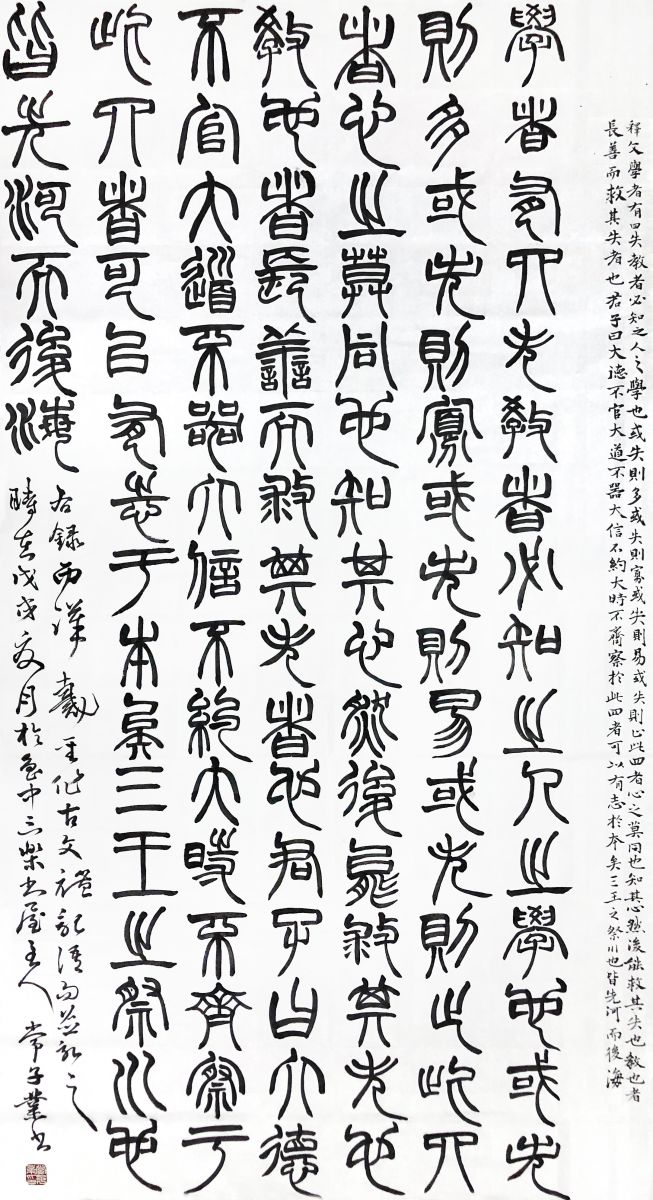 释文學者有四失教者必知之人之學也或失則多或失則寡或失則易或失則止此四者心之莫同也知其心然後能救其失也教也者
長善而救其失者也君子曰大德不官大道不器大信不約大時不齊察於此四者可以有志於本矣三王之祭川也皆先河而後海
學者有四失教者必知之人之學也或失
則多或失則寡或失則易或失則止此四
者心之莫同也知其心然後能救其失也
教也者長善而救其失者也君子曰大德
不官大道不器大信不約大時不齊察于
此四者可以有志于本矣三王之祭川也
皆先河而後海
右錄西漢戴聖作古文禮記語句並記之
時在戊戌夏月於魯中三樂書屋主人常子業書